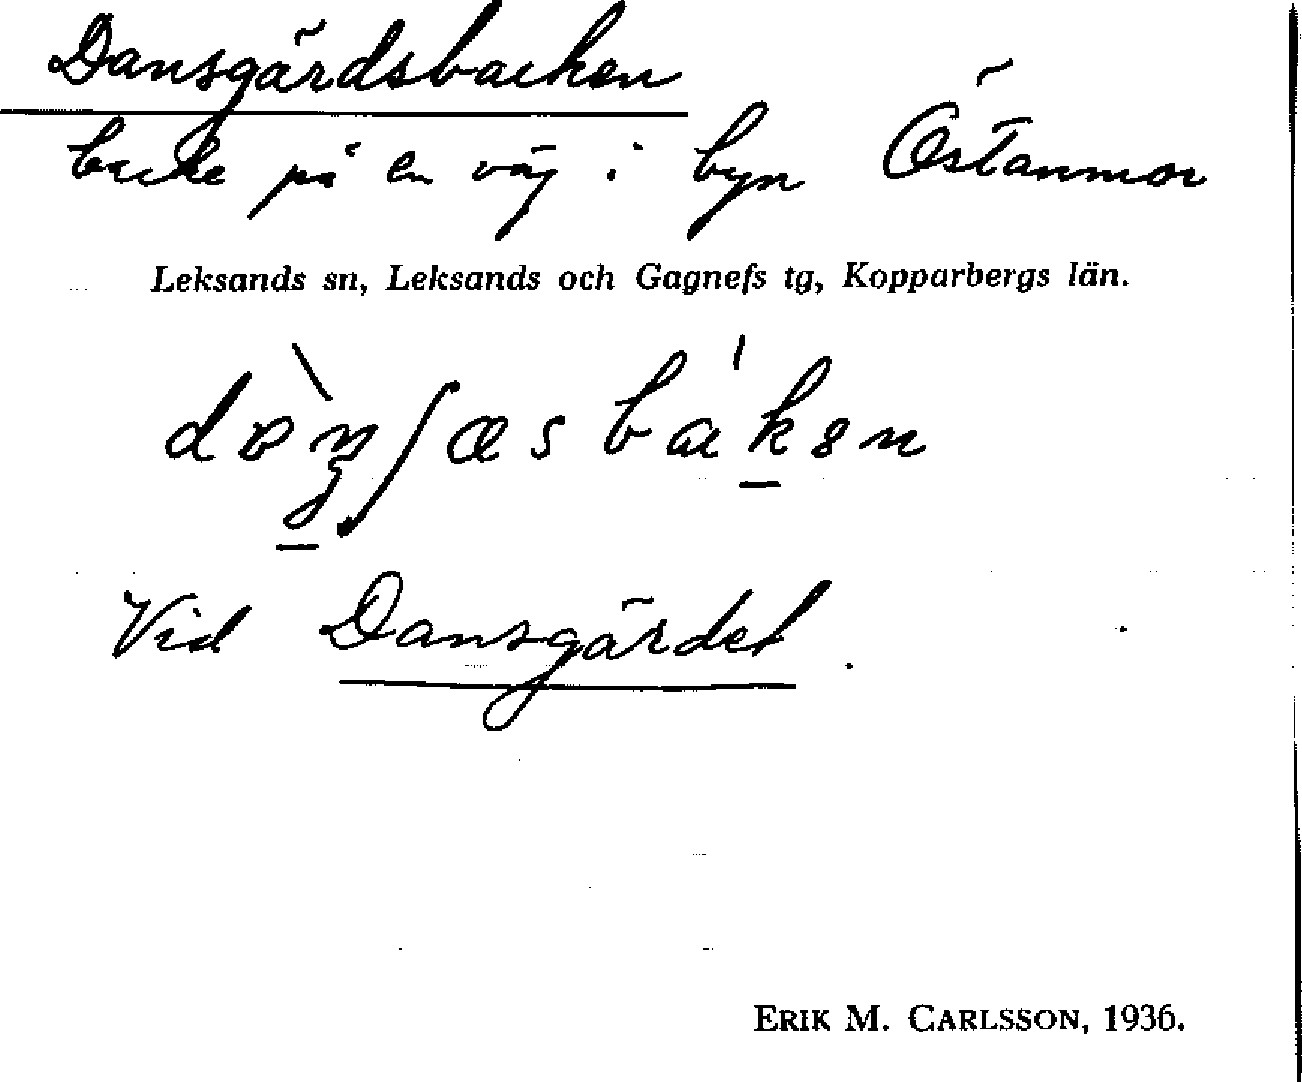 Dansgärdsbacken
backe på en väg i byn Östanmor
Leksands sn, Leksands och Gagnefs tg, Kopparbergs län.
Vid Dansgärdet.
ERIK M. CARLSSON, 1936.